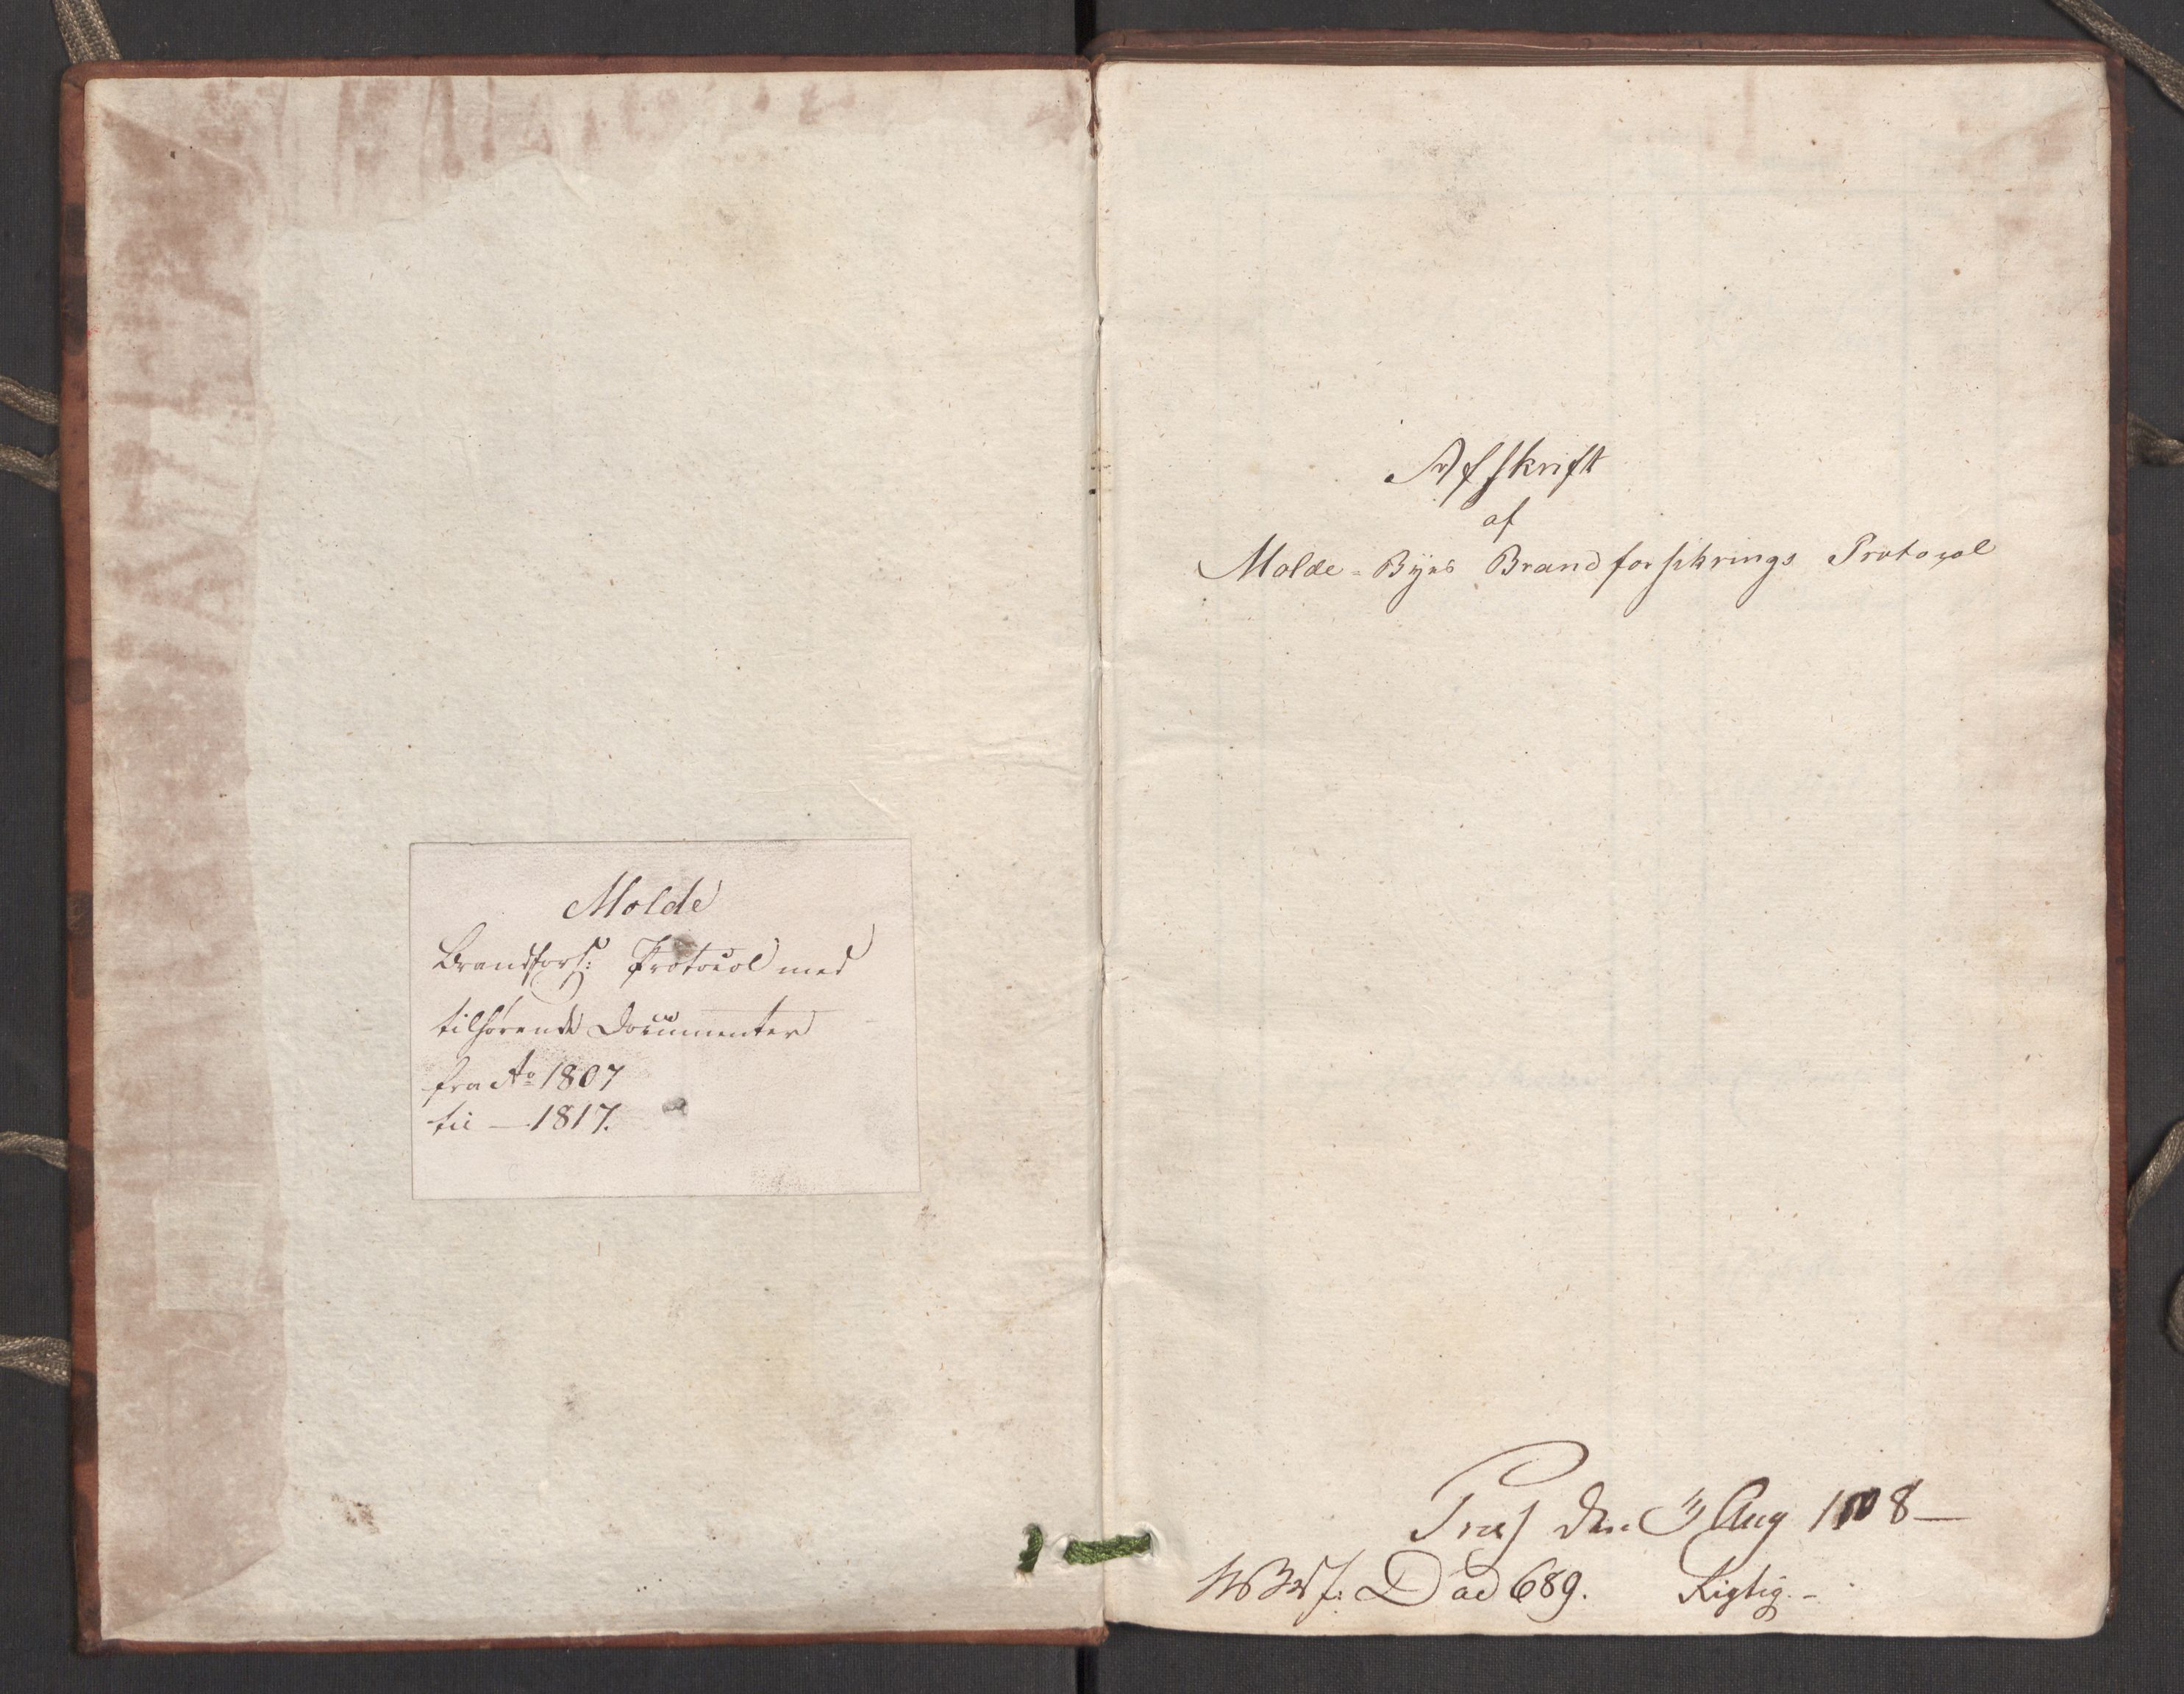 Molde
Brandfors: Protocol med
tilhørende Documenter
fra Ao 1807
til — 1817.
Afskrift
af
Molde-Byes Brandforsikrings Protocol
Præs den Aug 1808 —
D ad 689. Rigtig. -